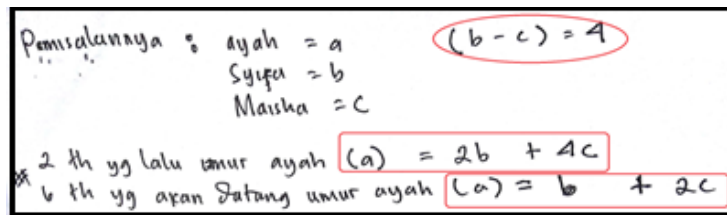 Pemisalannya : ayah = a (b - c) = 4
Syifa = b
Maisha = c
* 2 th yg lalu umur ayah (a) = 2b + 4c
6 th yg akan datang umur ayah (a) = b + 2c